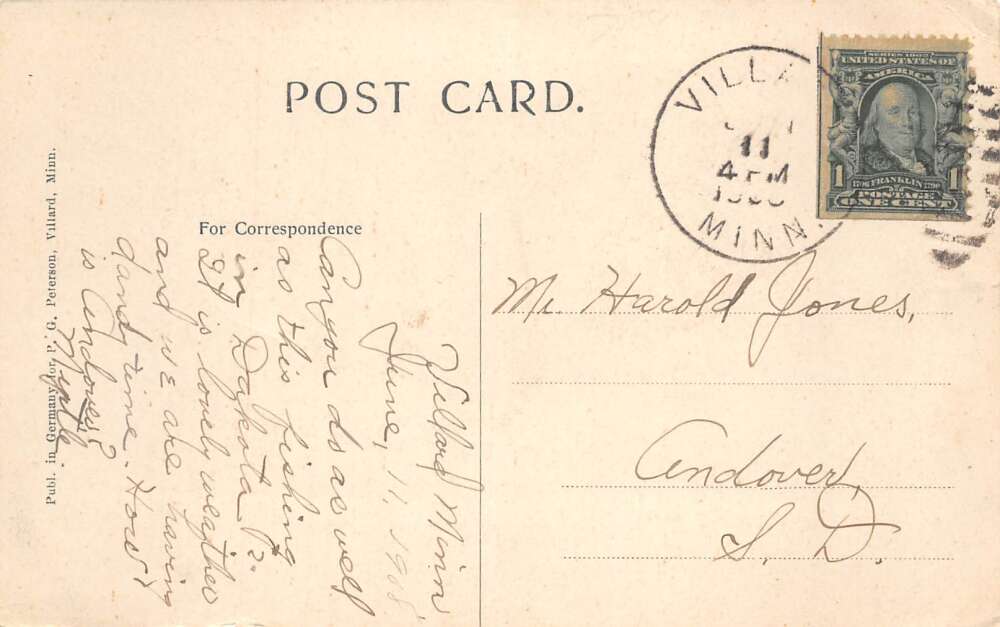 POST CARD.
For Correspondence
Publ. in Germany for P. G. Peterson, Villard, Minn.
VILLA
11
4 PM
MINN.
SERIES 1902
UNITED STATES OF
AMERICA
1 1
1706 FRANKLIN 1790
POSTAGE
ONE CENT
Villard Minn
June, 11, 1908.
Can you do as well
as this fishing
in Dakota?
It is lovely weather
and we are having
dandy time. How
is Andover?
Myrtle.
Mr. Harold Jones,
Andover,
S. D.